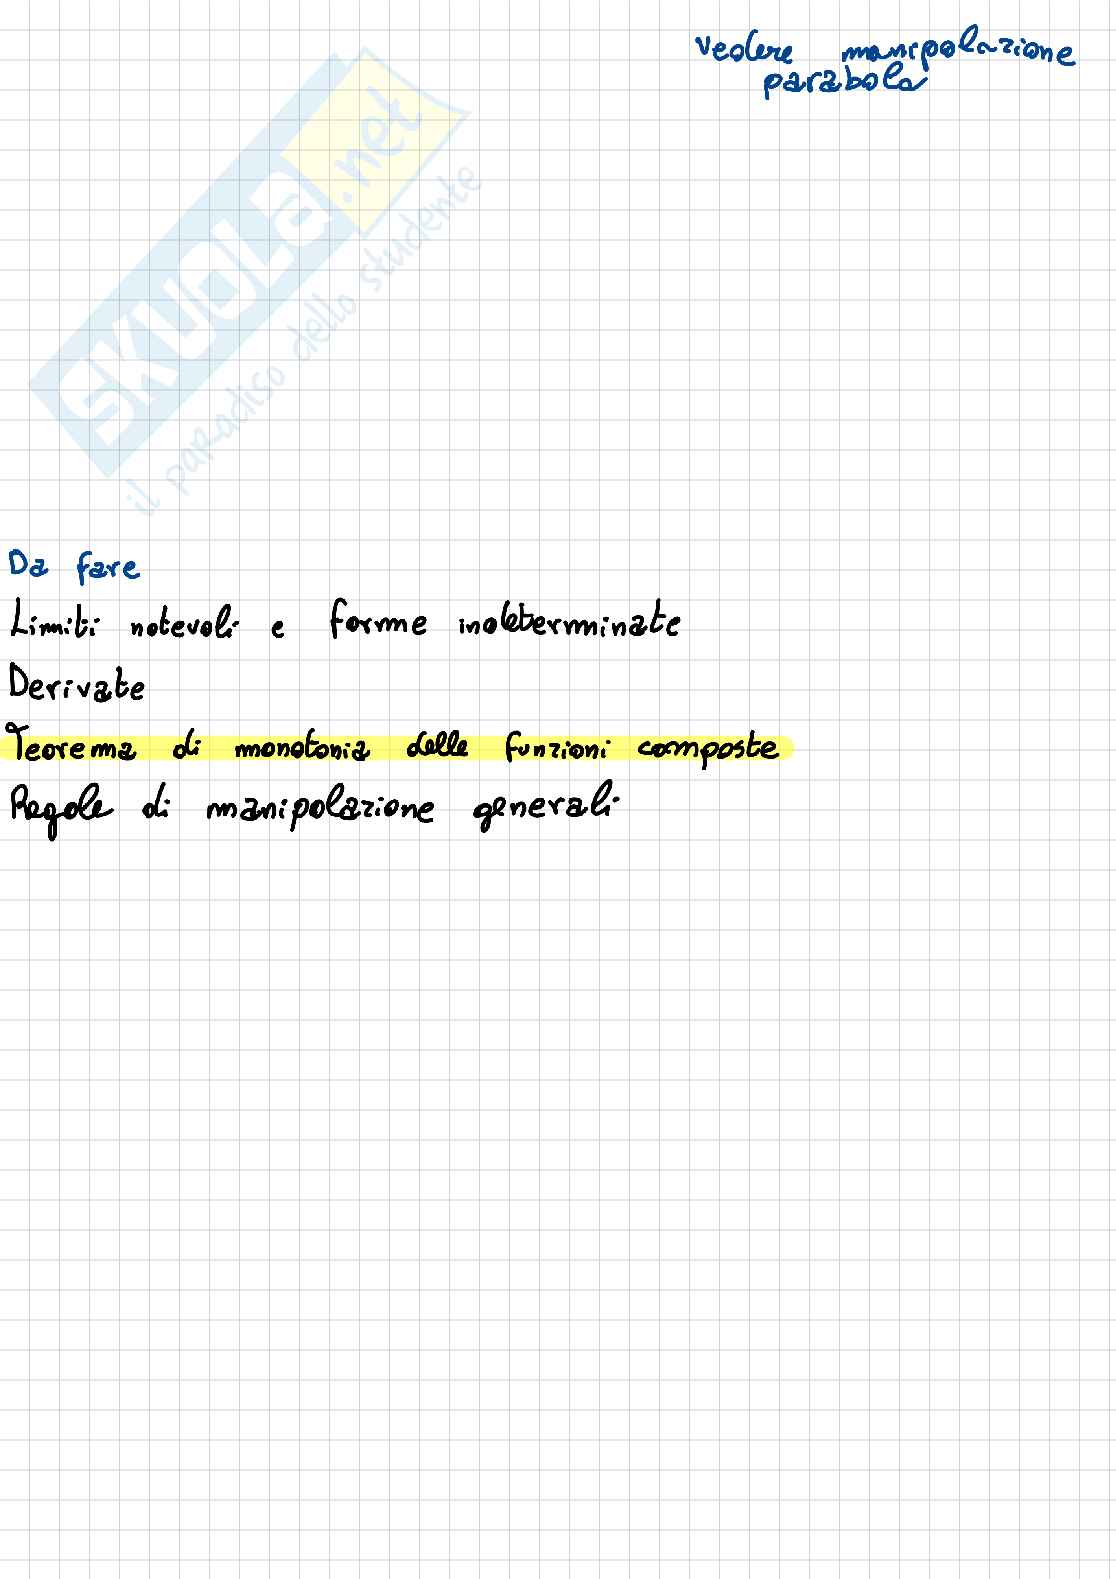 vedere manipolazione
parabola
SKUOLa.net
il paradiso dello studente
Da fare
Limiti notevoli e forme indeterminate
Derivate
Teorema di monotonia delle funzioni composte
Regole di manipolazione generali